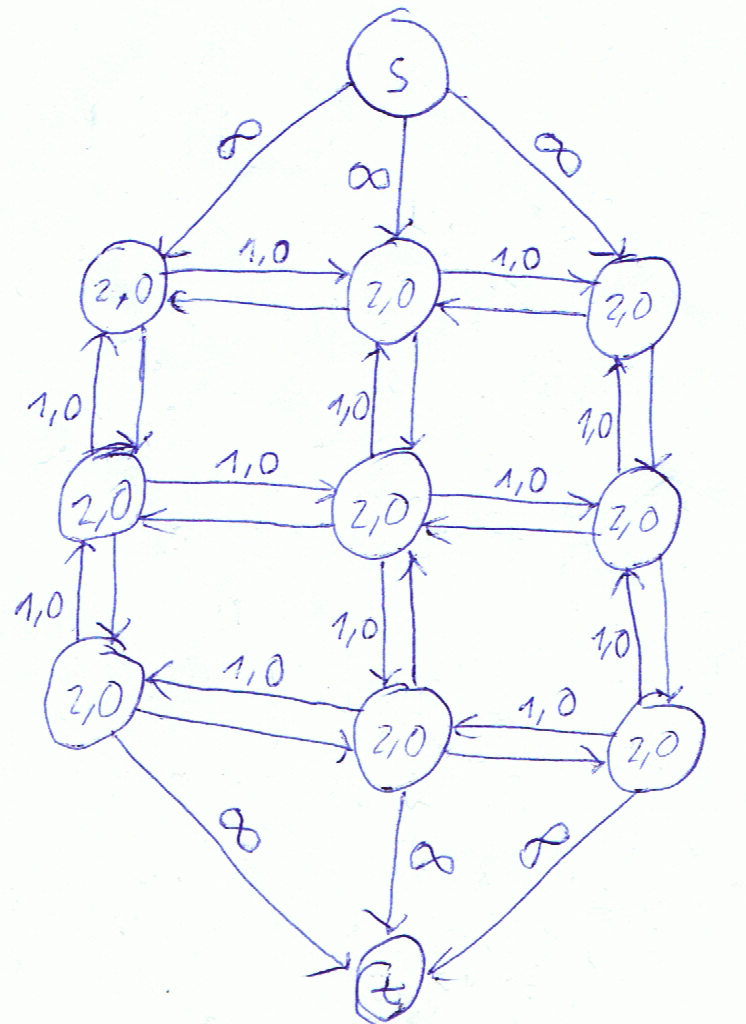 S
∞ ∞ ∞
1,0 1,0
2,0 2,0 2,0
1,0 1,0 1,0
1,0 1,0
2,0 2,0 2,0
1,0 1,0 1,0
1,0 1,0
2,0 2,0 2,0
∞ ∞ ∞
t